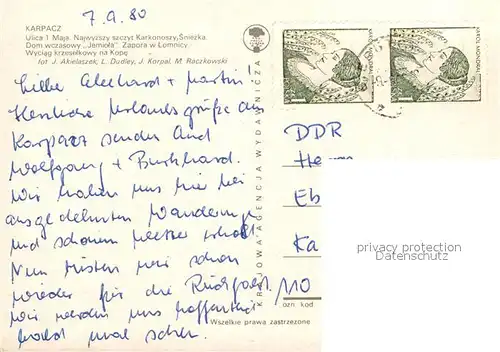 7.9.80
KARPACZ
Ulica 1 Maja. Najwyższy szczyt Karkonoszy, Śnieżka.
Dom wczasowy „Jemioła". Zapora w Łomnicy.
Wyciąg krzesełkowy na Kopę
fot J. Akielaszek, L. Dudley, J. Korpal, M. Raczkowski
Liebe + Martin!
Herzliche Urlaubsgrüße aus
Karpacz senden Euch
Wolfgang + Burkhard.
Wir haben uns hier bei
ausgedehnten Wanderungen
und schönem Wetter erholt.
Nun rüsten wir schon
wieder für die Rückfahrt.
Wir werden uns hoffentlich
bald mal sehen.
KRAJOWA AGENCJA WYDAWNICZA
DDR
Eb
Ka
110
ozn kod
Wszelkie prawa zastrzeżone
privacy protection
Datenschutz